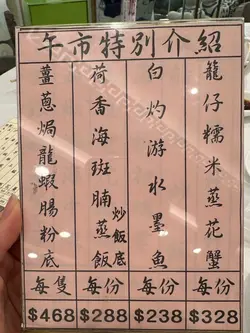 午市特別介紹
籠仔糯米蒸花蟹
每份
$328
白灼游水墨魚
每份
$238
荷香海斑腩蒸飯
炒飯底
每份
$288
薑蔥焗龍蝦腸粉底
每隻
$468